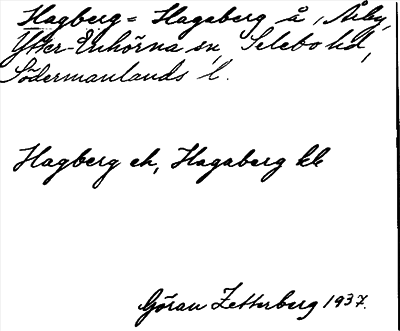 Hagberg = Hagaberg å, Åby,
Ytter-Enhörna sn, Selebo hd,
Södermanlands l.
Hagberg ek, Hagaberg kk
Göran Zetterberg 1937.